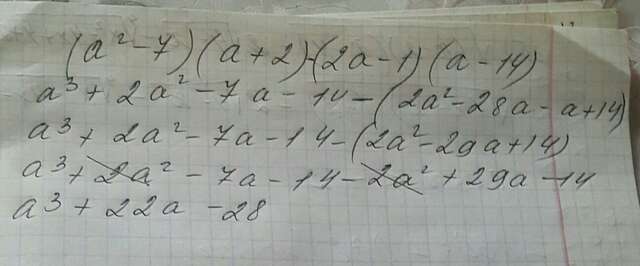 (a²-7)(a+2)-(2a-1)(a-14)
a³+2a²-7a-14-(2a²-28a-a+14)
a³+2a²-7a-14-(2a²-29a+14)
a³+2a²-7a-14-2a²+29a-14
a³+22a-28